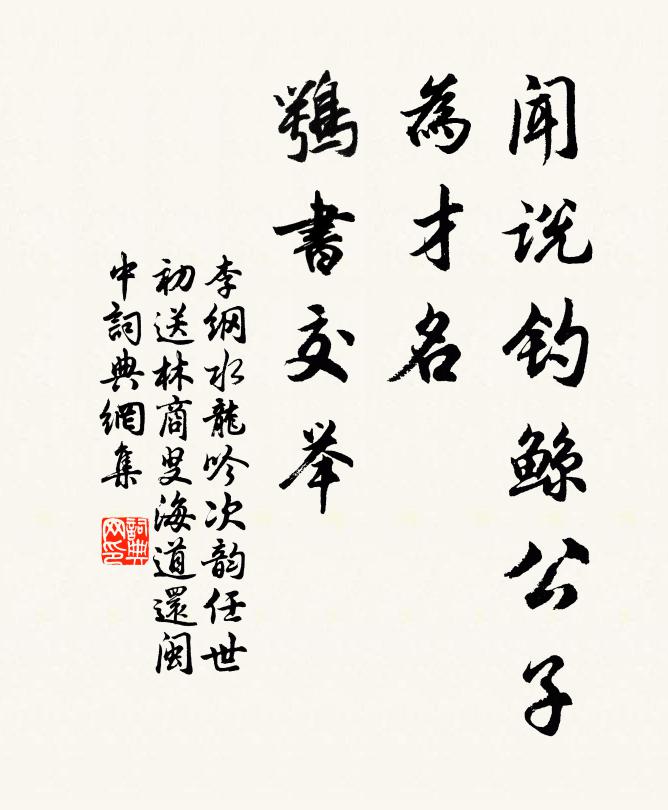 闻说钓鲸公子
為才名
鶚書交举
李纲水龍吟次韵任世
初送林商叟海道還闽
中詞典網集
詞典网印